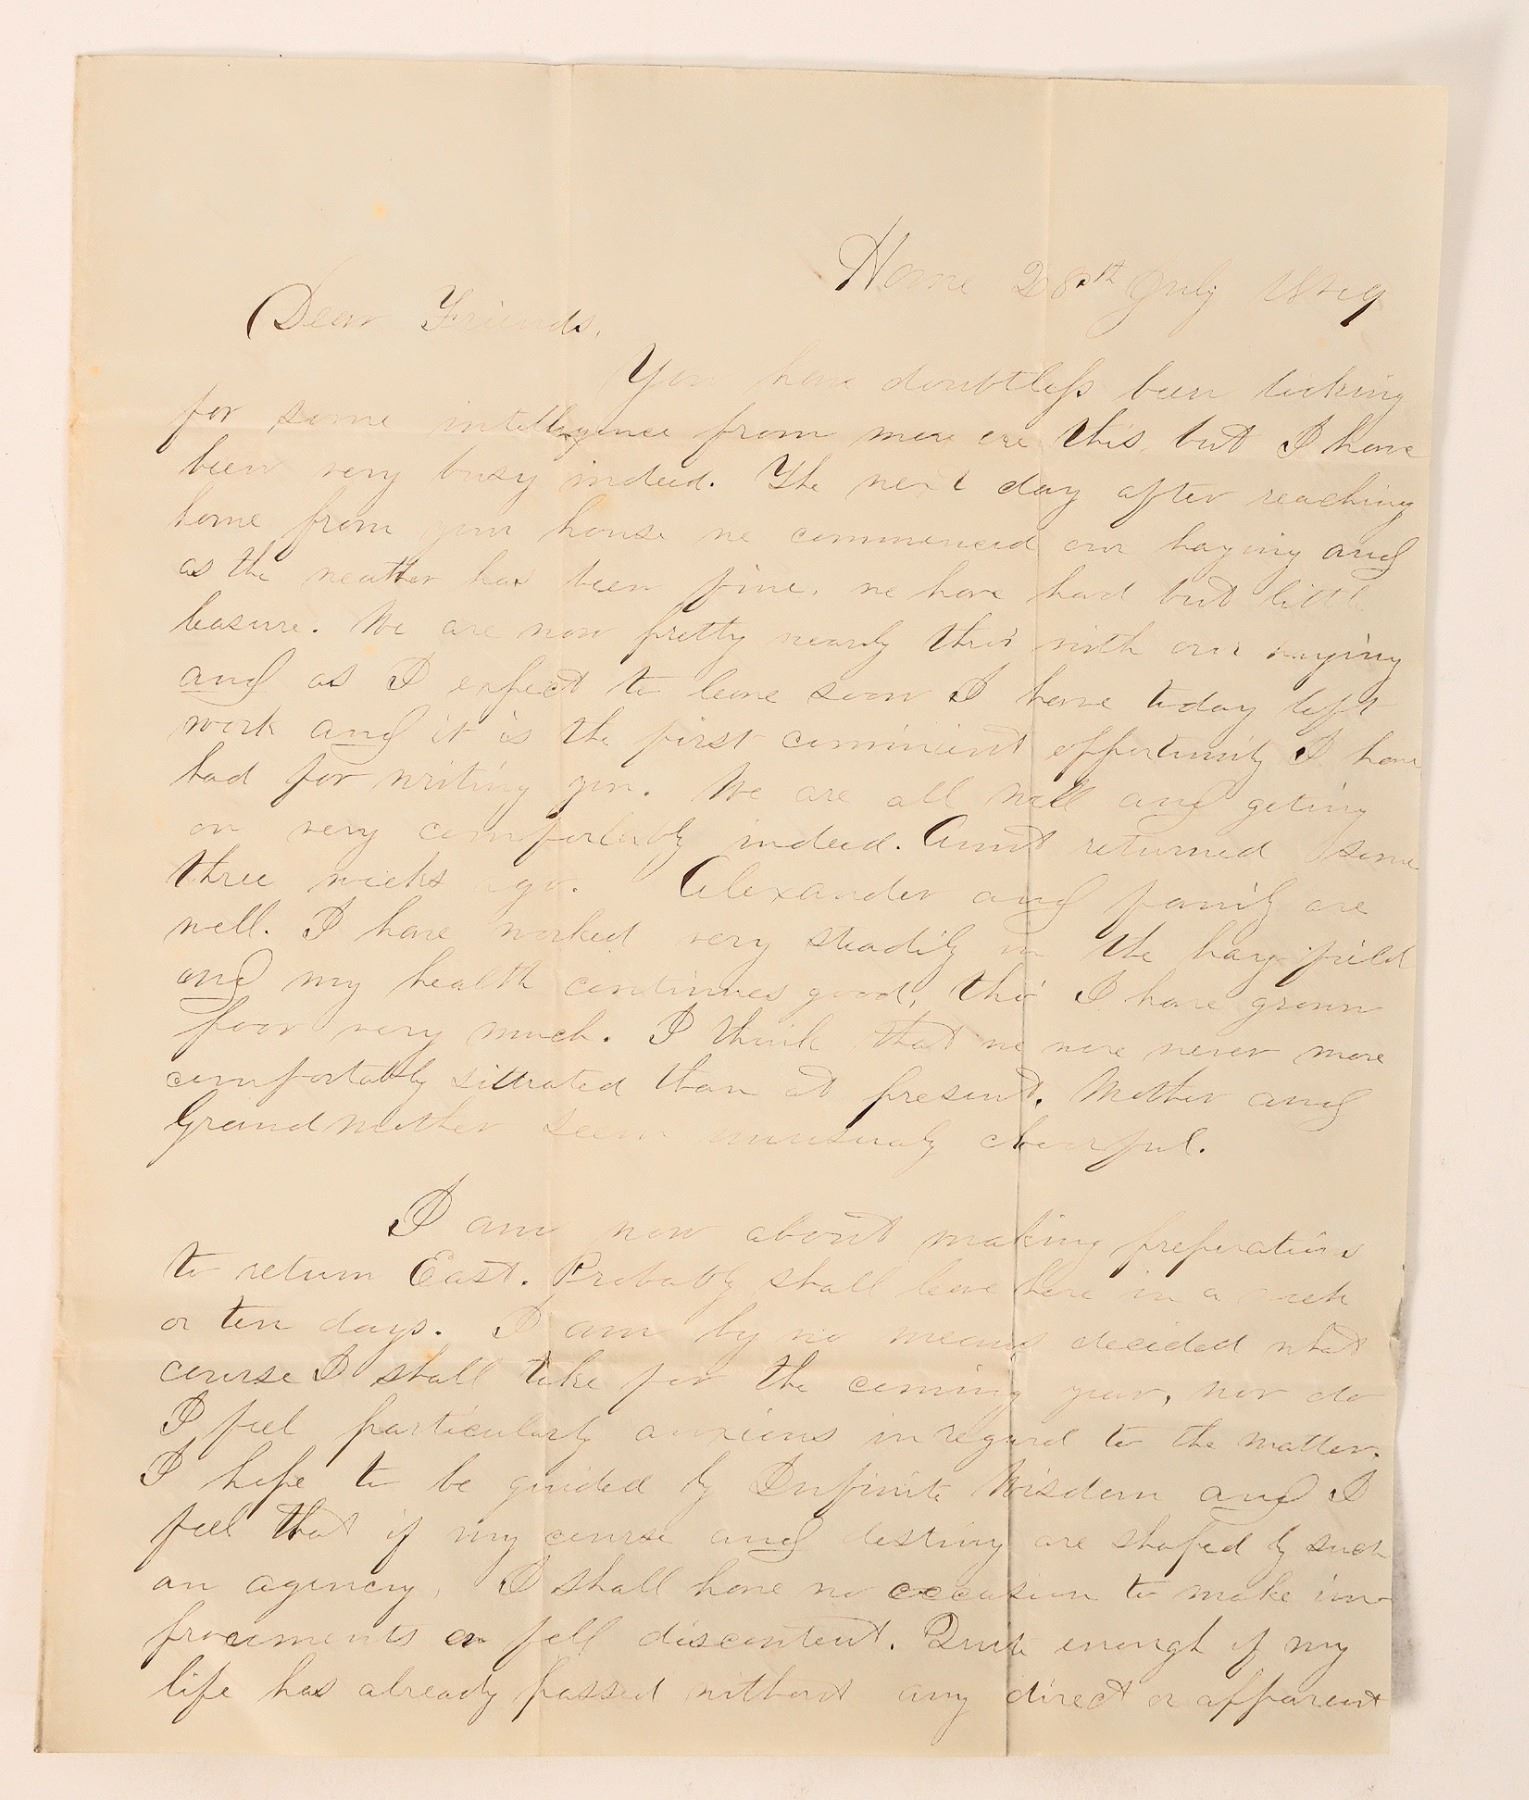 Home 28th July 1849
Dear Friends,
You have doubtless been looking
for some intelligence from me ere this, but I have
been very busy indeed. The next day after reaching
home from your house we commenced our haying and
as the weather has been fine, we have had but little
leasure. We are now pretty nearly thro' with our haying
and as I expect to leave soon I have today left
work and it is the first convinient oppertunity I have
had for writing you. We are all well and geting
on very comfortably indeed. Aunt returned some
three weeks ago. Alexander and family are
well. I have worked very steadily in the hay-field
and my health continues good, tho' I have grown
poor very much. I think that we were never more
comfortably situated than at present. Mother and
Grandmother seem unusualy cheerful.
I am now about making preperations
to return East. Probably shall leave here in a week
or ten days. I am by no means decided what
course I shall take for the coming year, nor do
I feel particularly anxious in regard to the matter.
I hope to be guided by Infinite Wisdom and I
feel that if my course and destiny are shaped by such
an agency, I shall have no occasion to make im-
provements or fell discontent. Quite enough of my
life has already passed without any direct or apparent